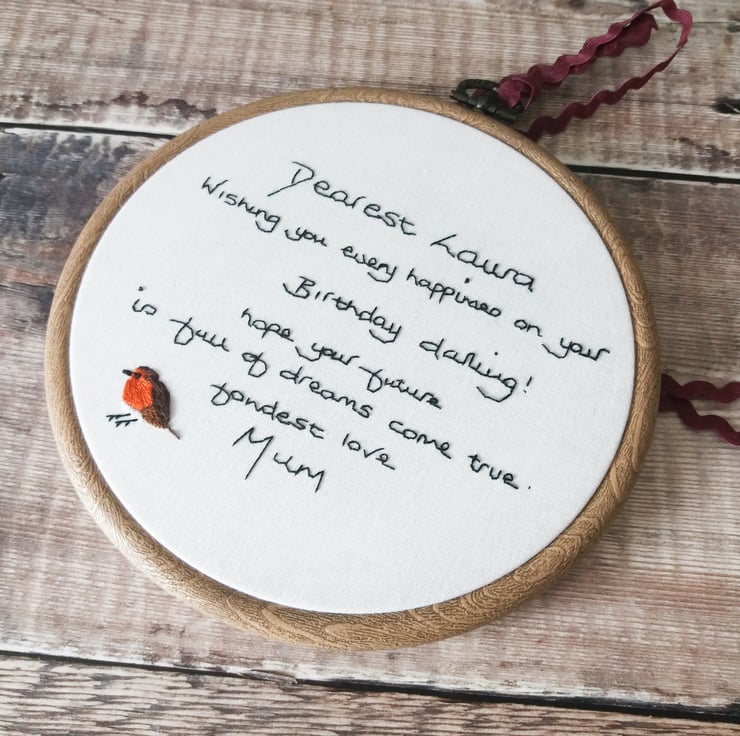 Dearest Laura
Wishing you every happiness on your
Birthday darling!
hope your future
is full of dreams come true.
fondest love
Mum